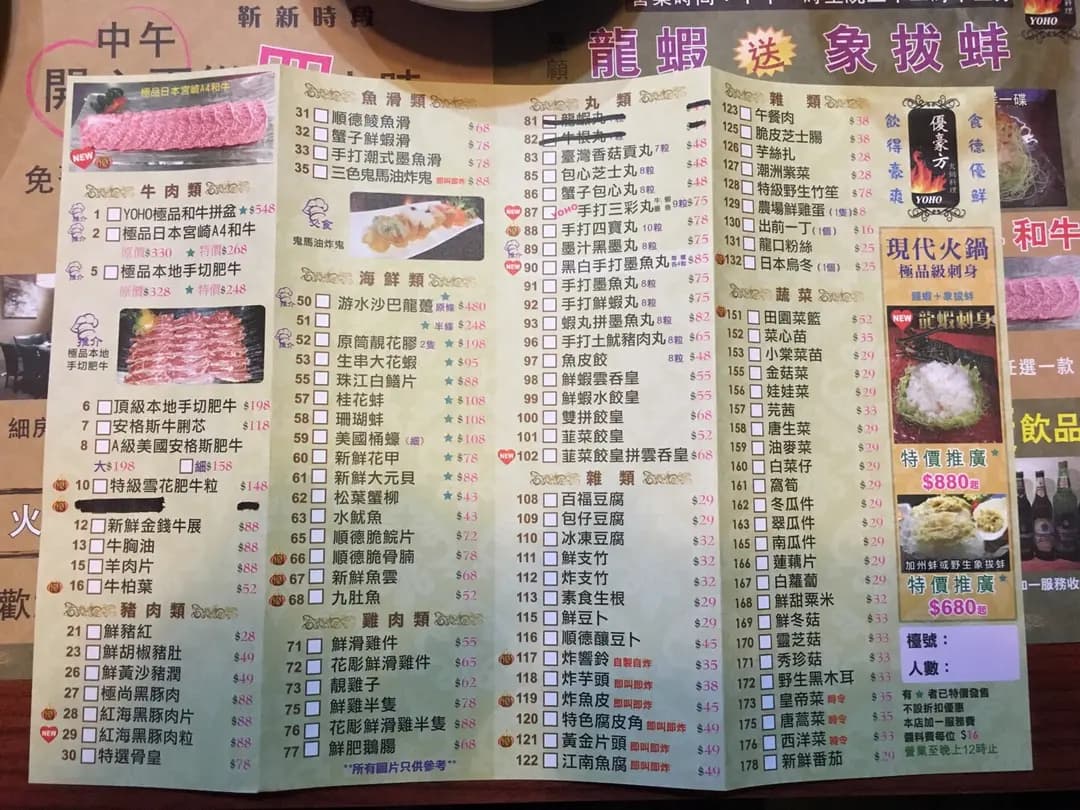 靳新時段
中午
龍蝦 送 象拔蚌
YOHO
極品日本宮崎A4和牛
NEW
牛肉類
推介 1 YOHO極品和牛拼盆 ★$548
推介 2 極品日本宮崎A4和牛
原價$330 ★特價$268
推介 5 極品本地手切肥牛
原價$328 ★特價$248
推介
極品本地
手切肥牛
6 頂級本地手切肥牛 $198
7 安格斯牛脷芯 $118
8 A級美國安格斯肥牛
大$198 細$158
10 特級雪花肥牛粒 $148
12 新鮮金錢牛展 $88
13 牛胸油 $88
15 羊肉片 $88
16 牛柏葉 $52
豬肉類
21 鮮豬紅 $28
23 鮮胡椒豬肚 $49
26 鮮黃沙豬潤 $49
27 極尚黑豚肉 $88
28 紅海黑豚肉片 $88
NEW 29 紅海黑豚肉粒 $88
30 特選骨皇 $78
魚滑類
31 順德鯪魚滑 $68
32 蟹子鮮蝦滑 $78
33 手打潮式墨魚滑 $78
35 三色鬼馬油炸鬼 即叫即炸 $88
鬼馬油炸鬼
海鮮類
推介 50 游水沙巴龍躉 原條 ★$480
51 ★半條 $248
推介 52 原筒靚花膠 2隻 ★$198
53 生串大花蝦 ★$95
55 珠江白鱔片 ★$88
57 桂花蚌 ★$108
58 珊瑚蚌 ★$108
59 美國桶蠔(細) ★$108
60 新鮮花甲 ★$78
61 新鮮大元貝 ★$88
62 松葉蟹柳 ★$43
63 水魷魚 $43
65 順德脆鯇片 $72
66 順德脆骨腩 $78
67 新鮮魚雲 $68
68 九肚魚 $52
雞肉類
71 鮮滑雞件 $55
72 花彫鮮滑雞件 $65
73 靚雞子 $62
75 鮮雞半隻 $78
76 花彫鮮滑雞半隻 $88
77 鮮肥鵝腸 $68
**所有圖片只供參考**
丸類
81 龍蝦丸
82 牛根丸
83 臺灣香菇貢丸 7粒 $48
85 包心芝士丸 8粒 $48
86 蟹子包心丸 8粒 $48
NEW 87 YOHO手打三彩丸 9粒 $75
88 手打四寶丸 10粒 $78
推介 89 墨汁黑墨丸 8粒 $75
NEW 90 黑白手打墨魚丸 $85
91 手打墨魚丸 8粒 $75
92 手打鮮蝦丸 8粒 $75
93 蝦丸拼墨魚丸 8粒 $82
96 手打土魷豬肉丸 8粒 $65
97 魚皮餃 8粒 $48
98 鮮蝦雲呑皇 $55
99 鮮蝦水餃皇 $55
100 雙拼餃皇 $68
101 韮菜餃皇 $52
NEW 102 韮菜餃皇拼雲呑皇 $68
雜類
108 百福豆腐 $29
109 包仔豆腐 $29
110 冰凍豆腐 $32
111 鮮支竹 $32
112 炸支竹 $32
113 素食生根 $29
115 鮮豆卜 $29
116 順德釀豆卜 $45
117 炸響鈴 自製自炸 $35
118 炸芋頭 即叫即炸 $38
119 炸魚皮 即叫即炸 $45
120 特色腐皮角 即叫即炸 $49
121 黃金片頭 即叫即炸 $49
122 江南魚腐 即叫即炸 $49
雜類
123 午餐肉 $38
125 脆皮芝士腸 $38
126 芋絲扎 $28
127 潮洲紫菜 $28
128 特級野生竹笙 $78
129 農場鮮雞蛋(1隻) $8
130 出前一丁(1個) $16
131 龍口粉絲 $25
132 日本烏冬(1個) $25
蔬菜
151 田園菜籃 $52
152 菜心苗 $35
153 小棠菜苗 $29
155 金菇菜 $29
156 娃娃菜 $29
157 芫茜 $33
158 唐生菜 $29
159 油麥菜 $29
160 白菜仔 $29
161 窩筍 $29
162 冬瓜件 $29
163 翠瓜件 $29
165 南瓜件 $29
166 蓮藕片 $29
167 白蘿蔔 $29
168 鮮甜粟米 $32
169 鮮冬菇 $33
170 靈芝菇 $33
171 秀珍菇 $33
172 野生黑木耳 $33
173 皇帝菜 時令 $35
175 唐蒿菜 時令 $35
176 西洋菜 時令 $33
178 新鮮番茄 $29
飲得豪爽
優豪方
火鍋料理
YOHO
食德優鮮
現代火鍋
極品級刺身
龍蝦+象拔蚌
NEW 龍蝦刺身
特價推廣★
$880起
加州蚌或野生象拔蚌
特價推廣★
$680起
檯號：
人數：
有★者已特價發售
不設折扣優惠
本店加一服務費
醬料費每位 $16
營業至晚上12時止
一碟
和牛
任選一款
飲品
加一服務收
細房
火
歡
免